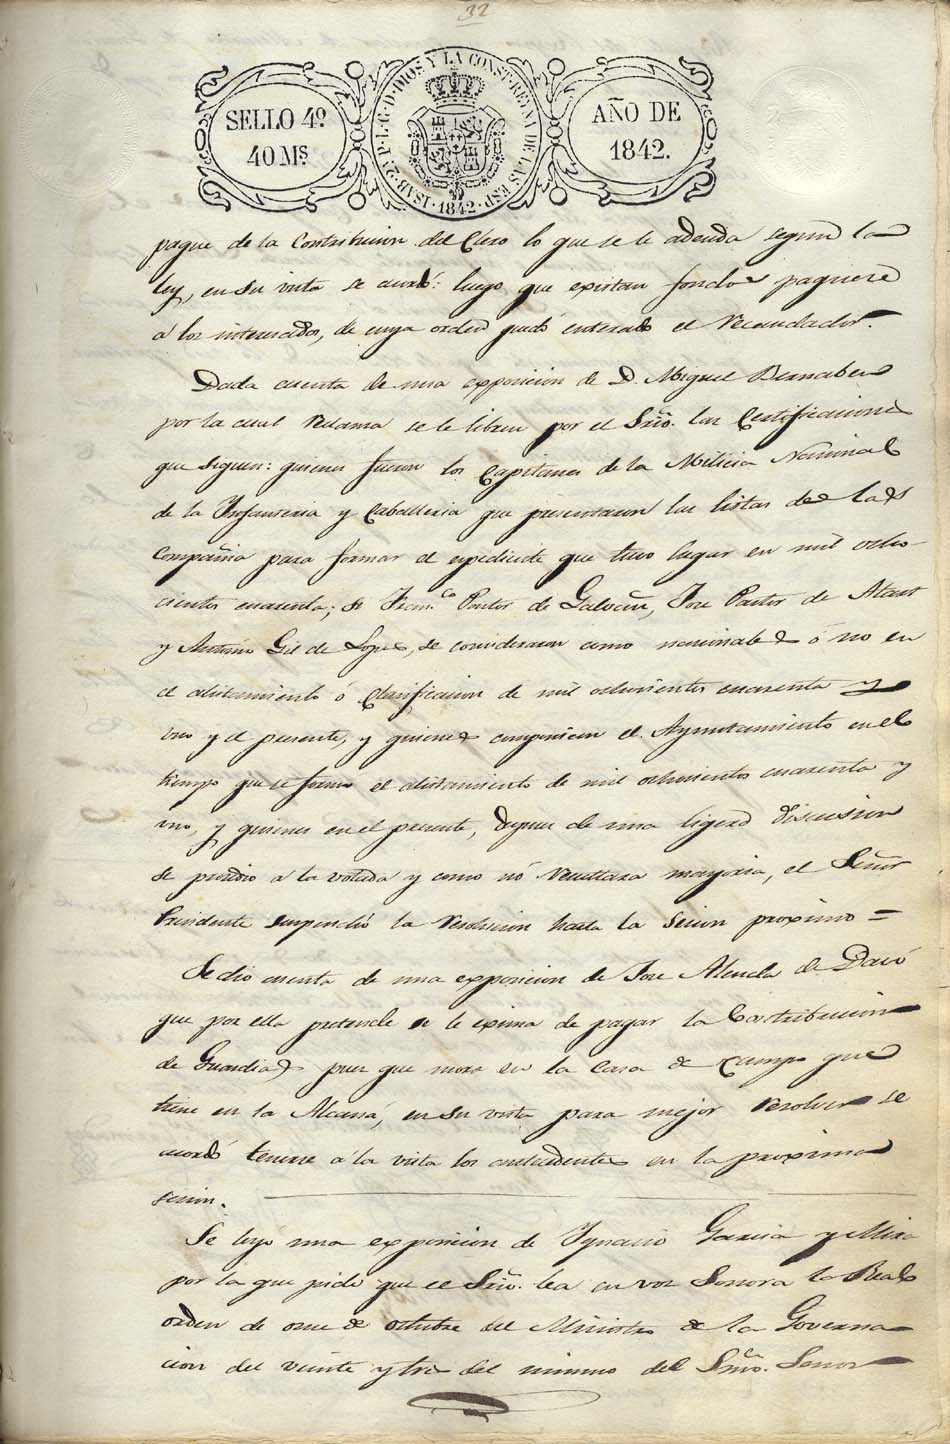 32
SELLO 4º
40 Ms.
ISAB. 2ª P. L. G. D. DIOS Y LA CONST. REYNA DE LAS ESP.
1842
AÑO DE
1842.
pague de la Contribucion del Clero lo que se le adeuda segun la
ley, en su vista se acordó: luego que existan fondos paguese
á los interesados, de cuya orden quedó enterado el Recaudador.
Dada cuenta de una exposicion de D. Miguel Bernabeu
por la cual reclama se le libren por el Srio. las Certificaciones
que siguen: quienes fueron los Capitanes de la Milicia Nacional
de la Infanteria y Caballeria que presentaron las listas de las
Compañia para formar el espediente que tuvo lugar en mil ocho-
cientos cuarenta; si Franco. Pastor de Galvañ, Jose Pastor de
y Antonio Gil de Lopez, se consideraron como nacionales ó no en
el alistamiento ó Clasificacion de mil ochocientos cuarenta y
uno y el presente, y quienes componian el Ayuntamiento en el
tiempo que se formó el alistamiento de mil ochocientos cuarenta y
uno, y quienes en el presente, despues de una ligera discusion
se procedio á la votada y como nó resultara mayoria, el Señor
Presidente suspendió la resolucion hasta la sesion proximo =
Se dio cuenta de una exposicion de Jose de
que por ella pretende se le exima de pagar la Contribucion
de Guardias pues que mora en la Casa de campo que
tiene en la Alcaná, en su vista para mejor resolver se
acordó tenerse á la vista los antecedentes en la proxima
sesion.
Se leyo una exposicion de Ygnacio Garcia y Mira
por la que pide que el Srio. lea en voz Sonora la Real
orden de once de octubre del Ministro de la Governa
cion del veinte y tres del mismo del Señor